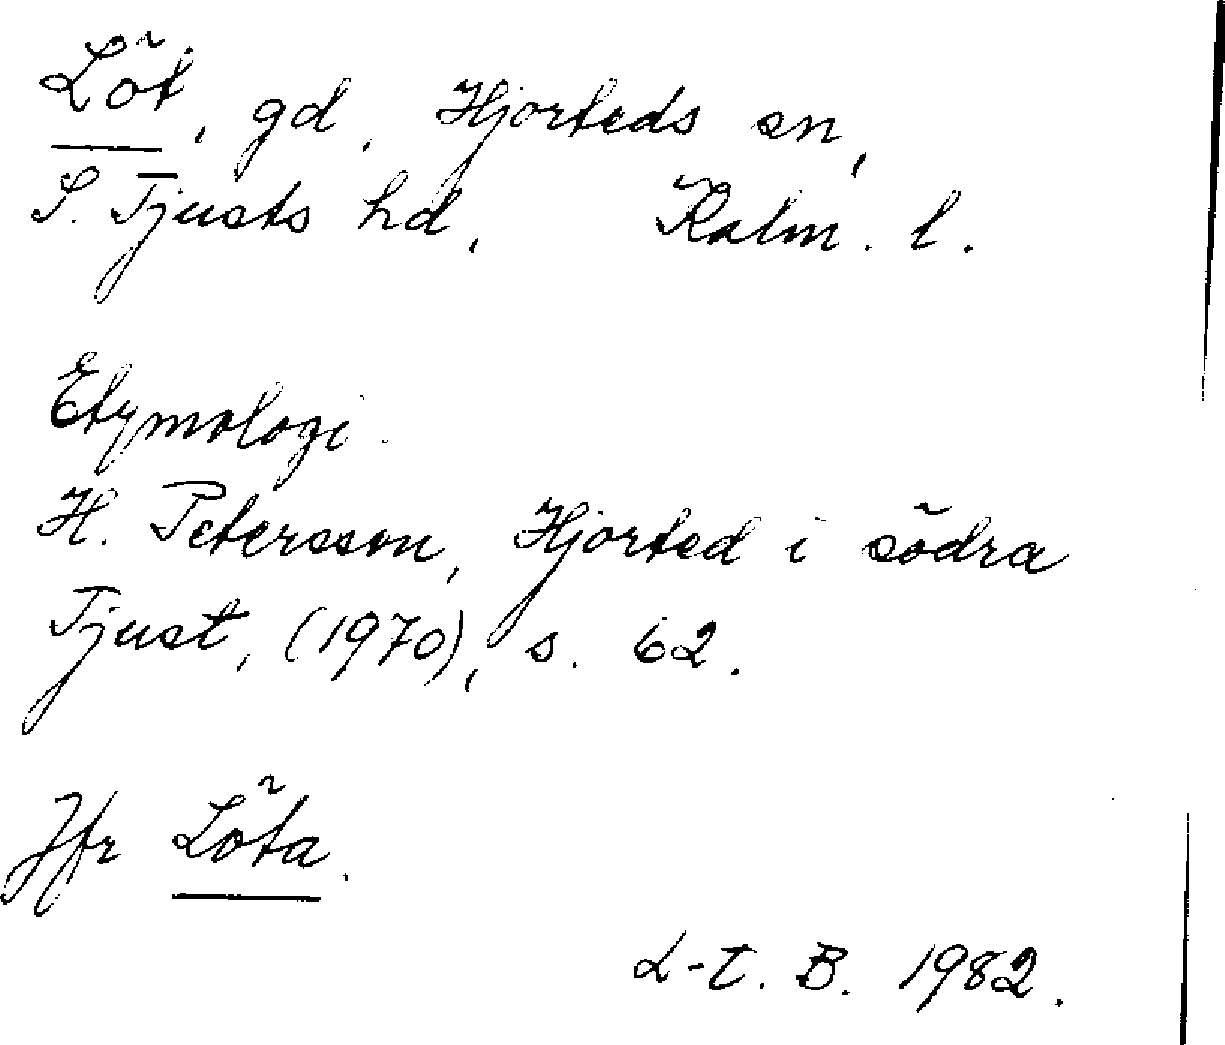 Löt, gd, Hjorteds sn,
S. Tjusts hd, Kalm. l.
Etymologi.
H. Petersson, Hjorted i södra
Tjust, (1970), s. 62.
Jfr Löta.
L-t. B. 1982.